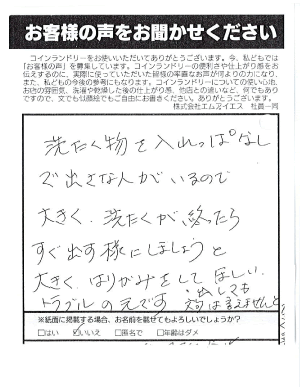 お客様の声をお聞かせください
コインランドリーをお使いいただいてありがとうございます。今、私どもでは
「お客様の声」を募集しています。コインランドリーの便利さや仕上がり感をお
伝えするのに、実際に使っていただいた皆様の率直なお声が何よりの力になり、ま
た、私どもの今後の参考にもなります。コインランドリーについての使い心地、
お店の雰囲気、洗濯や乾燥した後の仕上がり感、他店との違いなど、何でもあり
ですので、文でも似顔絵でもご自由にお書きください。ありがとうございます。
株式会社エムアイエス 社員一同
洗たく物を入れっぱなし
で出さな人がいるので
大きく、洗たくが終ったら
すぐ出す様にしましょうと
大きく、はりがみをしてほしい、
トラブルの元です
出しても
文句は言えませんと
※紙面に掲載する場合、お名前を載せてもよろしいでしょうか?
□はい ☑いいえ □匿名で □年齢はダメ